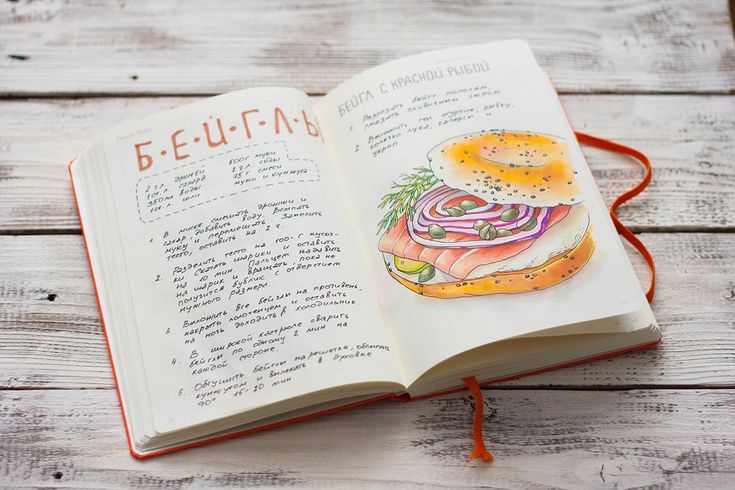 Б·Е·Й·Г·Л·Ы
2 ч.л. дрожжей
1 ст.л. сахара
350 мл воды
1 ч.л. соли
600 г муки
2 г
75 г смеси
мука и кунжута
1. В миске смешать дрожжи и
сахар, добавить воду. Всыпать
муку и перемешать. Замесить
тесто, оставить на 2 г.
2. Разделить тесто на 100-г кусоч-
ки. Скатать шарики и оставить
на 10 мин. Пальцем надавить
на шарик и вращать, пока не
получится бублик с отверстием
нужного размера.
3. Выложить все бейглы на противень,
накрыть полотенцем и оставить
на ночь доходить в холодильник
4. В широкой кастрюле сварить
бейглы по одному 2 мин на
каждой стороне.
5. Обсушить бейглы на решетке, обсыпать
кунжутом и выпекать в духовке
90° 15-20 мин.
БЕЙГЛ С КРАСНОЙ РЫБОЙ
1. Разрезать бейгл пополам,
смазать сливочным сыром
2. Выложить огурчик, рыбку,
колечко лука, каперсы и
укроп